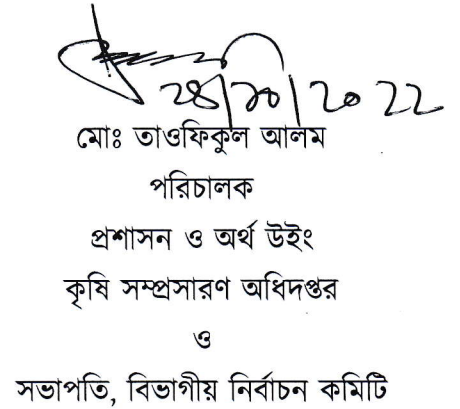 ২৪/১০/২০২২
মোঃ তাওফিকুল আলম
পরিচালক
প্রশাসন ও অর্থ উইং
কৃষি সম্প্রসারণ অধিদপ্তর
ও
সভাপতি, বিভাগীয় নির্বাচন কমিটি